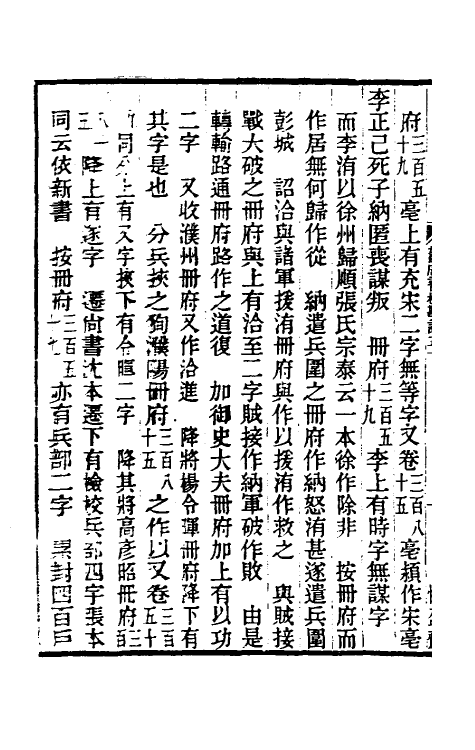 府三百五十九亳上有充宋二字無等字又卷三百八十五亳潁作宋亳
李正己死子納匿喪謀叛 冊府三百五十九李上有時字無謀字
而李洧以徐州歸順張氏宗泰云一本徐作除非 按冊府而
作居無何歸作從 納遣兵圍之冊府作納怒洧甚遂遣兵圍
彭城 詔洽與諸軍援洧冊府與作以援洧作救之 與賊接
戰大破之冊府與上有洽至二字賊接作納軍破作敗 由是
轉輸路通冊府路作之道復 加御史大夫冊府加上有以功
二字 又收濮州冊府又作洽進 降將楊令暉冊府降下有
其字是也 分兵挾之狥濮陽冊府三百八十五之作以又卷三百五十
同分上有又字挾下有令暉二字 降其將高彥昭冊府三百
五降上有遂字 遷尚書沈本遷下有檢校兵部四字張本
同云依新書 按冊府三百五十九亦有兵部二字 累封四百戶